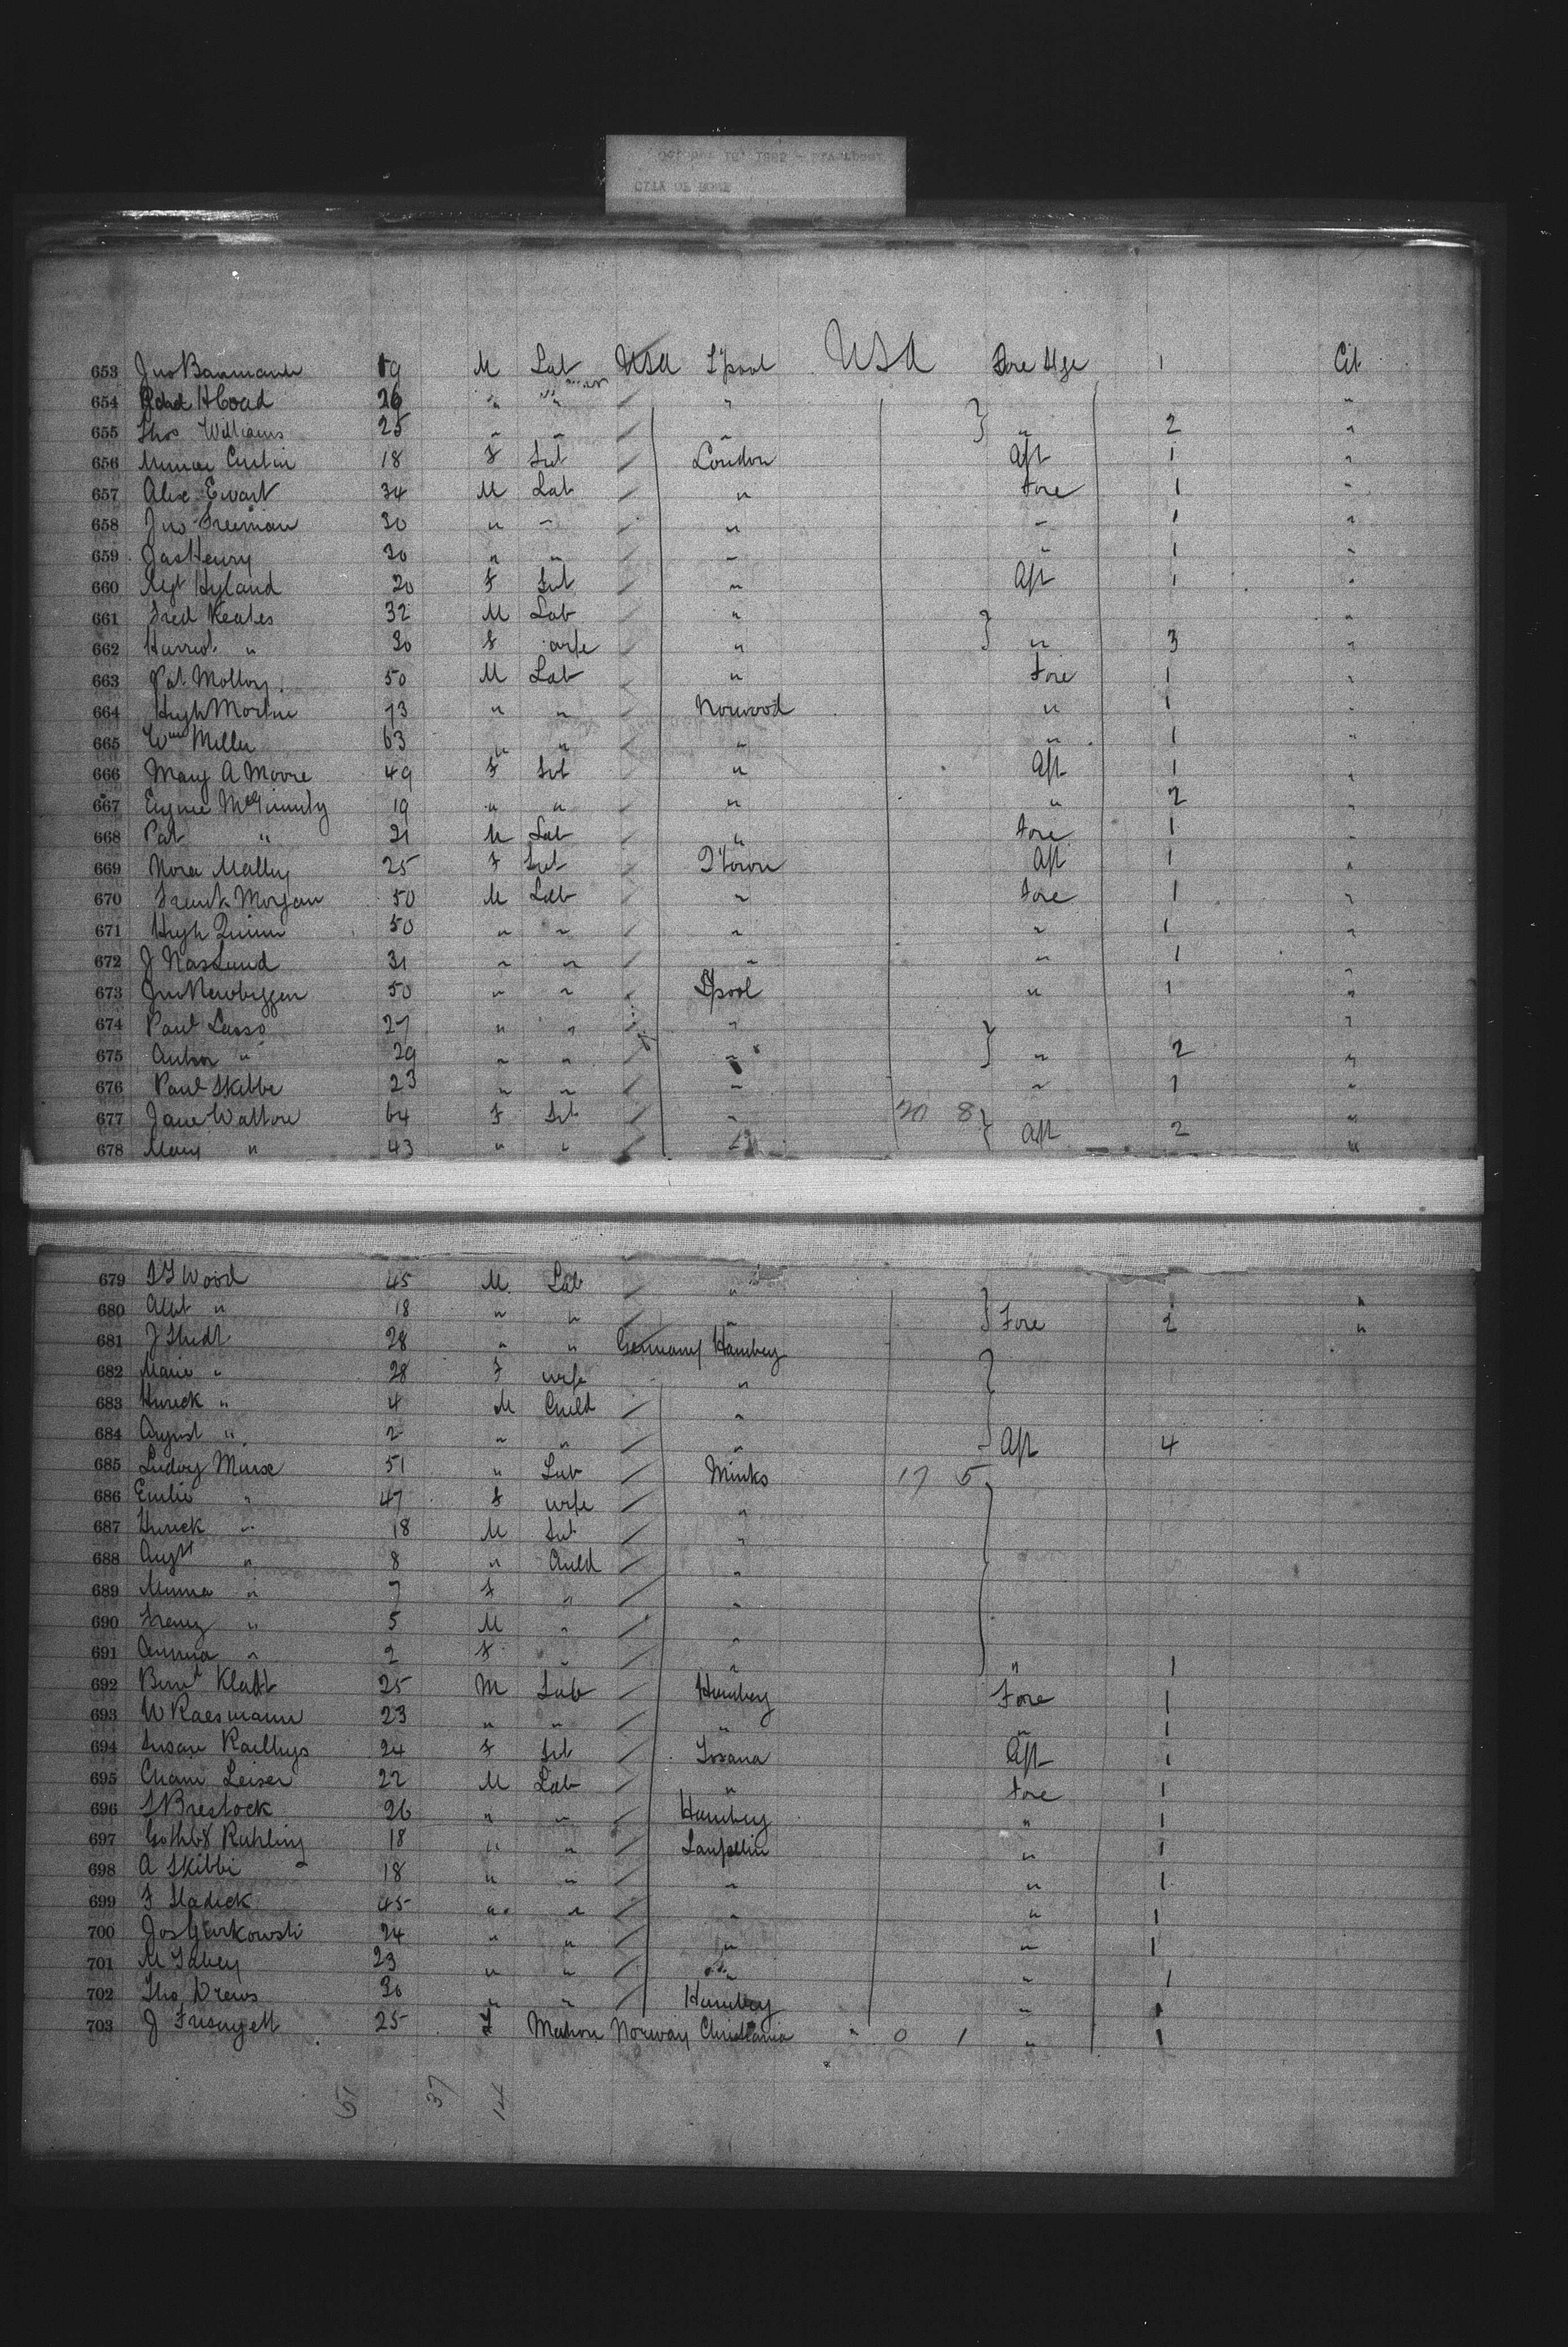 CITY OF ROME
653 Jno Baumann 19 M Lab USA L'pool USA Fore Stge 1 Cit
654 H Coad 26 " " / " "
655 Thos Williams 25 " " / " } " 2 "
656 Minnie Curtin 18 F Svt / London Aft 1 "
657 Alex Ewart 34 M Lab / " Fore 1 "
658 Jno Freeman 30 " " / " " 1 "
659 Jas Henry 30 " " / " " 1 "
660 Mgt Hyland 20 F Svt / " Aft 1 "
661 Fred Keates 32 M Lab / " "
662 Harriet " 30 F wife / " } " 3 "
663 Pat Molloy 50 M Lab / " Fore 1 "
664 Hugh 73 " " / Norwood " 1 "
665 Wm Miller 63 " " / " " 1 "
666 Mary A Moore 49 F Svt / " Aft 1 "
667 McGinnity 19 " " / " " 2 "
668 Pat " 21 M Lab / " Fore 1 "
669 Nora Malley 25 F Svt / Q'town Aft 1 "
670 Frank Morgan 50 M Lab / " Fore 1 "
671 Hugh Quinn 50 " " / " " 1 "
672 J Naslund 31 " " / " " 1
673 Jno Newbiggen 50 " " / L'pool " 1 "
674 Paul Lasso 27 " " / " "
675 Anton " 29 " " / " } " 2 "
676 Paul Skibbe 23 " " / " " 1 "
677 Jane Walton 64 F Svt / " 20 8 "
678 Mary " 43 " " / } Aft 2 "
679 Wood 45 M Lab / "
680 Albt " 18 " " / " } Fore 2 "
681 J 28 " " Germany Hamburg
682 Marie " 28 F wife "
683 " 4 M Child / "
684 August " 2 " " / " } Aft 4
685 51 " Lab / Minks 17 5
686 Emilie " 47 F wife / "
687 " 18 M / "
688 Augst " 8 " Child / "
689 Minna " 7 F " / "
690 " 5 M " / "
691 " 2 F " / " } " 1
692 Klatt 25 M Lab / Hamburg Fore 1
693 W Raesmann 23 " " / " " 1
694 Susan 24 F Svt / Aft 1
695 Leiser 22 M Lab / " Fore 1
696 26 " " / Hamburg " 1
697 Ruhling 18 " " / " 1
698 A Skibbi 18 " " / " " 1
699 F Sladick 45 " " / " " 1
700 Jos 24 " " / " " 1
701 M 23 " " / " " 1
702 Drews 30 " " / Hamburg " 1
703 J 25 Norway Christiania " 0 1 " 1
51 37 14